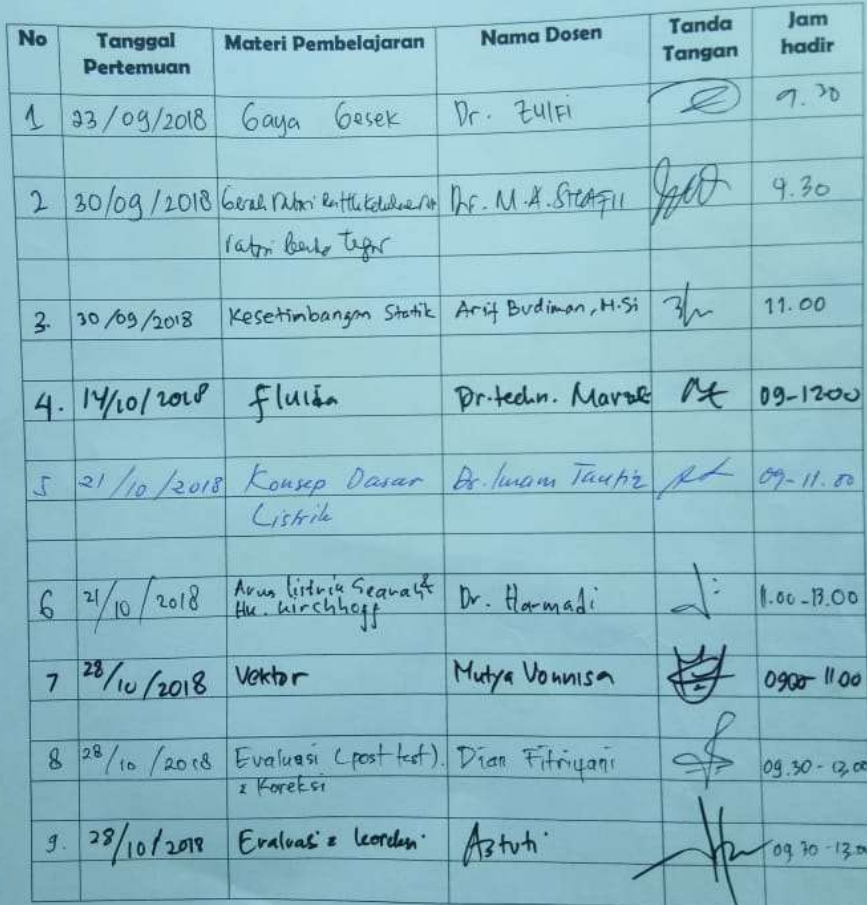 No Tanggal Pertemuan Materi Pembelajaran Nama Dosen Tanda Tangan Jam hadir
1 23/09/2018 Gaya Gesek Dr. Zulfi 9.30
2 30/09/2018 Dr. M.A. SHAFII 9.30
3. 30/09/2018 Kesetimbangan Statik Arif Budiman, M.Si 11.00
4. 14/10/2018 Fluida Dr.techn. Marzuki 09-1200
5 21/10/2018 Konsep Dasar Dr. Imam Taufiq 09-11.00
Listrik
6 21/10/2018 Arus listrik Searah & Dr. Harmadi 11.00-13.00
Hu. Kirchhoff
7 28/10/2018 Vektor Mutya Vonnisa 0900-1100
8 28/10/2018 Evaluasi (post test) Dian Fitriyani 09.30-13.00
& Koreksi
9. 28/10/2018 Evaluasi & Astuti 09.30-13.00